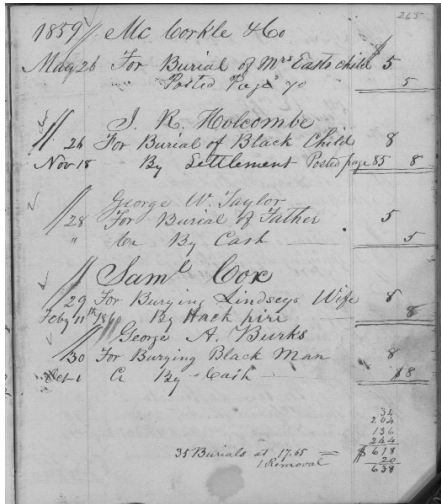 265
1859 // Mc Corkle & Co $
May 26 For Burial of Mrs Easts child 5
" Posted Page 70 " 5
// J. R. Holcombe
26 For Burial of Black Child 8
Nov 18 By Settlement Posted page 85 8
// George W. Taylor
28 For Burial of Father 5
" By Cash 5
// Saml Cox
29 For Burying Lindseys Wife 8
Feby 11th 1860 By Hack hire 8
// George A. Burks
30 For Burying Black Man 8
Oct 1 Cr By Cash $8
34
204
136
244
35 Burials at 17.65 = $ 618
1 Removal 20
638